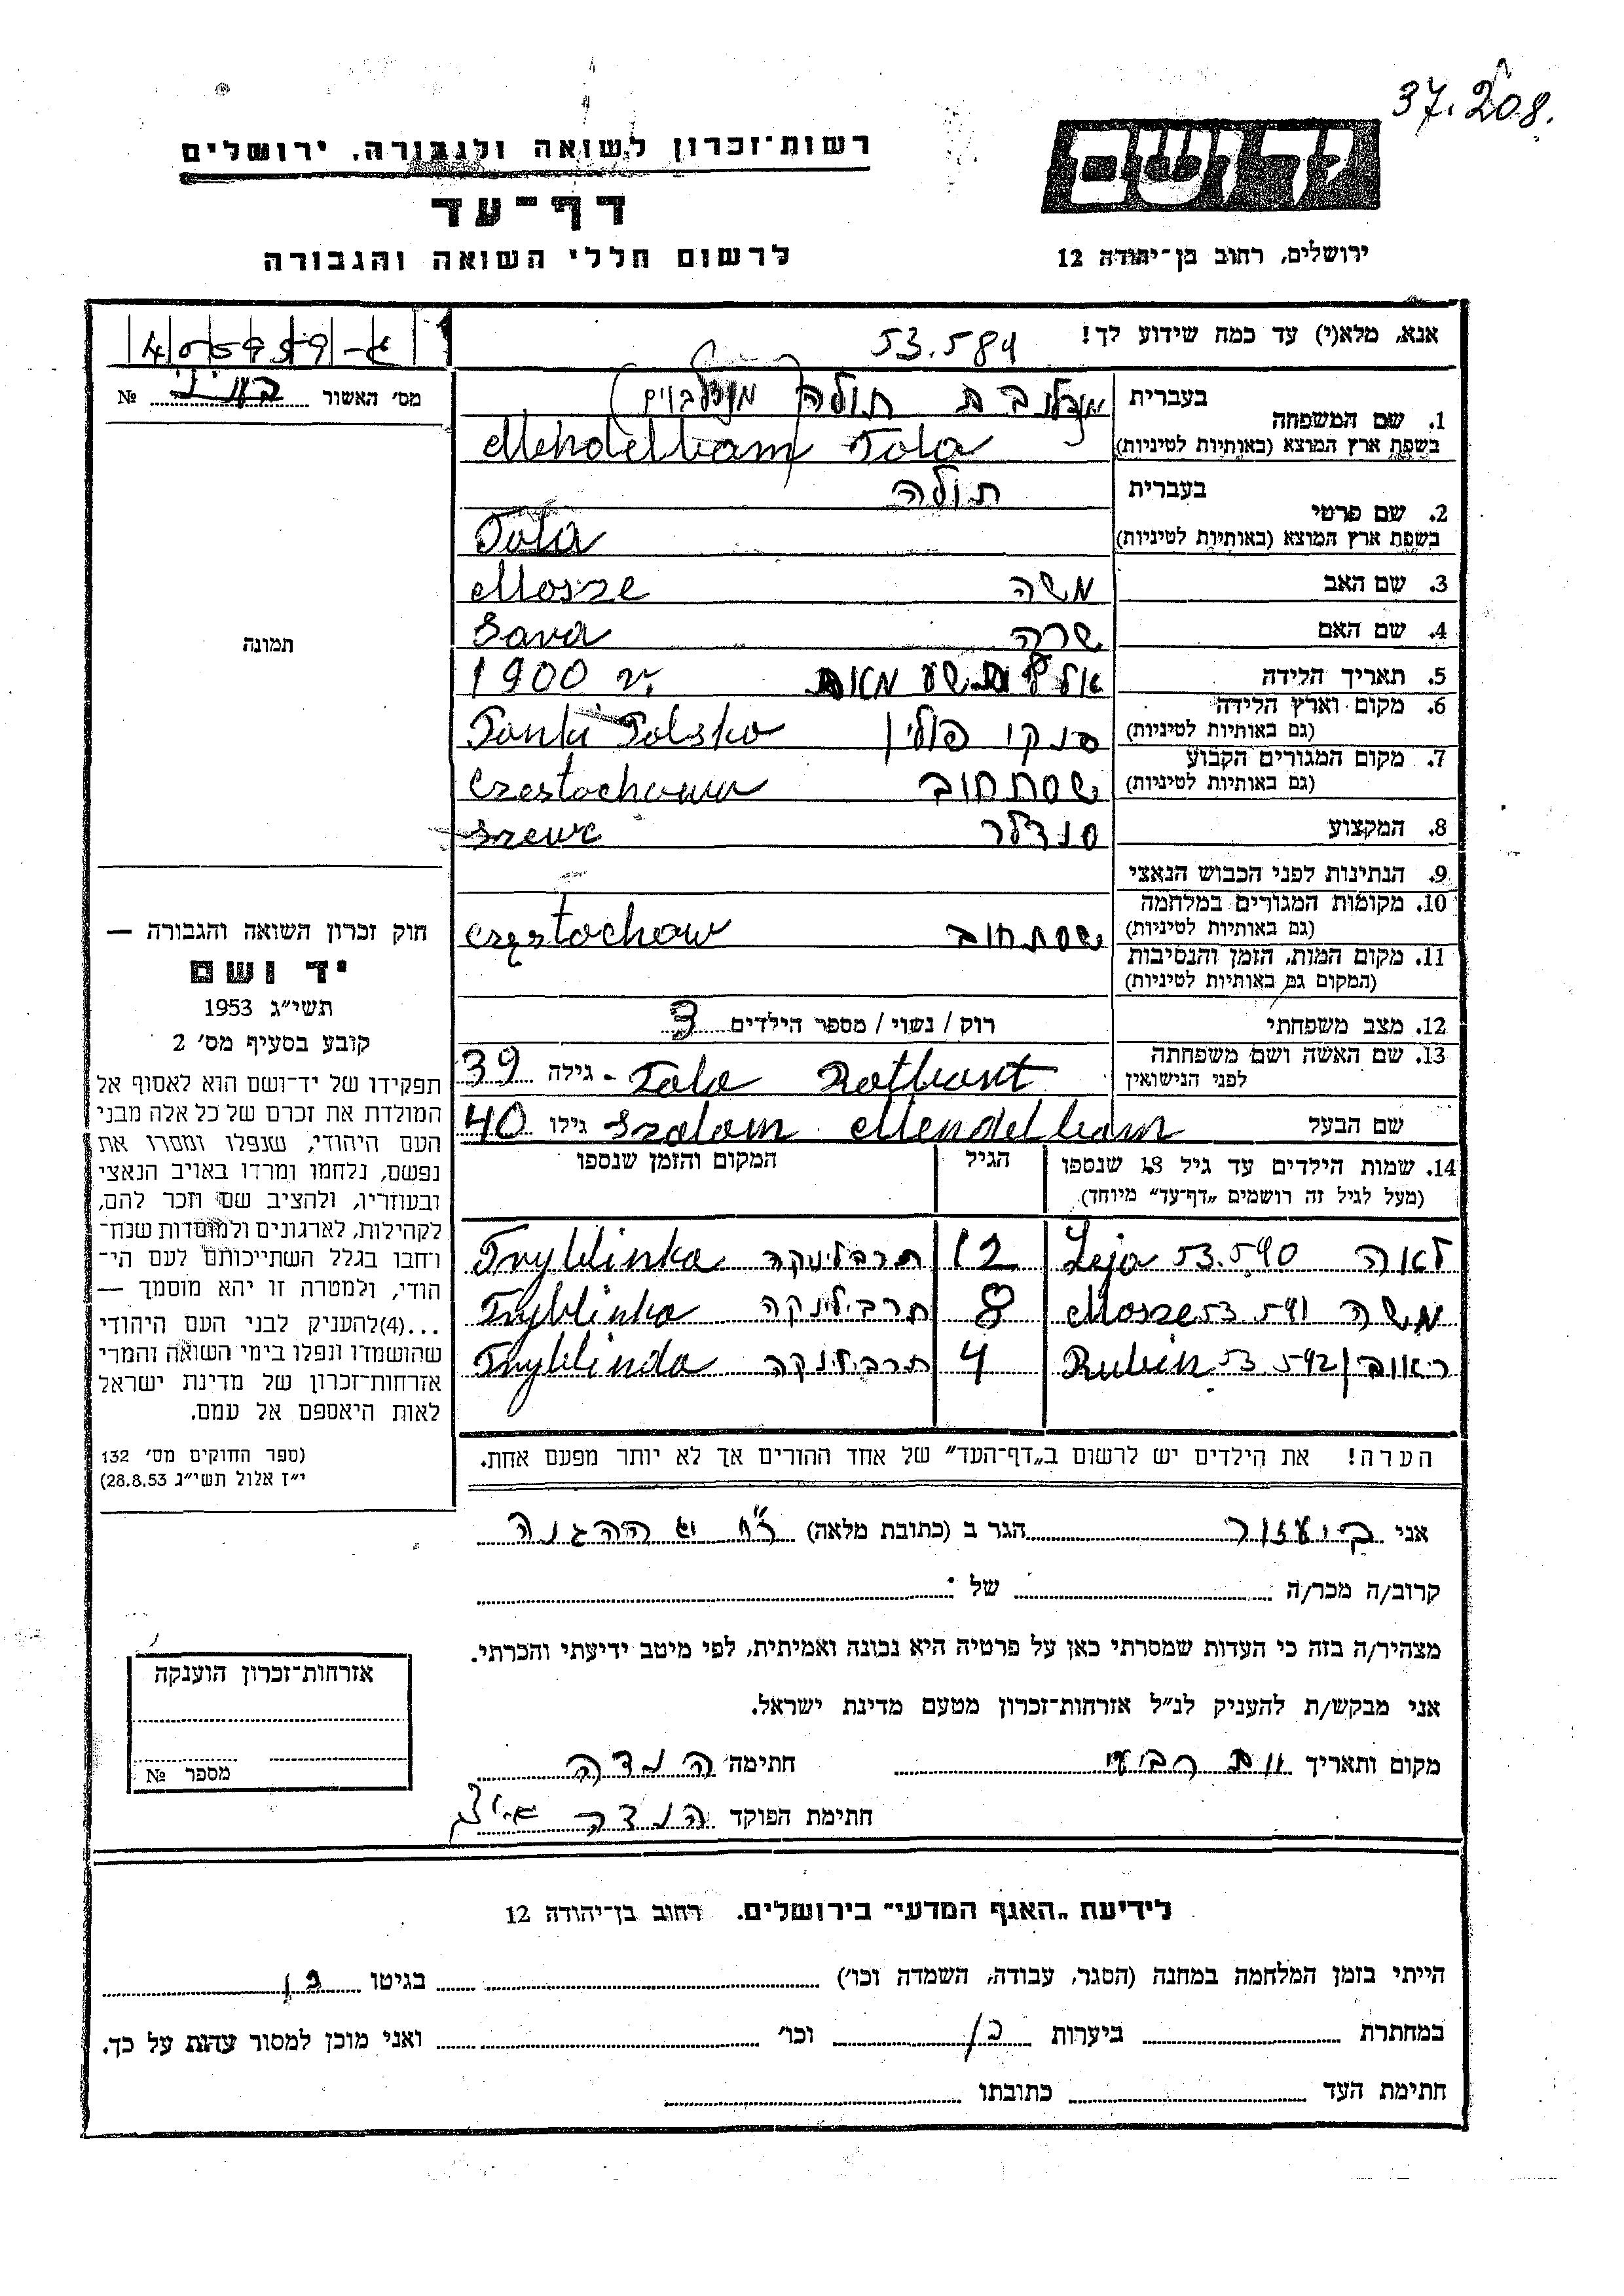 37.208.
רשות־זכרון לשואה ולגבורה, ירושלים
ידושם
דף־עד
לרשום חללי השואה והגבורה
ירושלים, רחוב בן־יהודה 12
אנא, מלא(י) עד כמה שידוע לך!
53.589
מס׳ האשור № 
1. שם המשפחה
בעברית תולה
בשפת ארץ המוצא (באותיות לטיניות) Mendelbam Tola
2. שם פרטי
בעברית תולה
בשפת ארץ המוצא (באותיות לטיניות) Tola
3. שם האב משה Mosze
4. שם האם שרה Sara
5. תאריך הלידה אלף ותשע מאות 1900 r.
6. מקום וארץ הלידה
(גם באותיות לטיניות) פולין Polska
7. מקום המגורים הקבוע
(גם באותיות לטיניות) שסתחוב Czestochowa
8. המקצוע סנדלר szewc
9. הנתינות לפני הכבוש הנאצי
10. מקומות המגורים במלחמה
(גם באותיות לטיניות) שסתחוב Częstochow
11. מקום המות, הזמן והנסיבות
(המקום גם באותיות לטיניות)
12. מצב משפחתי רוק / נשוי / מספר הילדים 3
13. שם האשה ושם משפחתה
לפני הנישואין Tola גילה 39
שם הבעל Szalom Mendelbam גילו 40
14. שמות הילדים עד גיל 18 שנספו הגיל המקום והזמן שנספו
(מעל לגיל זה רושמים „דף־עד״ מיוחד).
לאה 53.590 Leja 12 תרבלינקה Tryblinka
משה 53.591 Mosze 8 תרבילינקה Tryblinka
ראובן 53.592 Rubin 4 תרבילינקה Tryblinda
הערה! את הילדים יש לרשום ב„דף־העד״ של אחד ההורים אך לא יותר מפעם אחת.
תמונה
חוק זכרון השואה והגבורה —
יד ושם
תשי״ג 1953
קובע בסעיף מס׳ 2
תפקידו של יד־ושם הוא לאסוף אל
המולדת את זכרם של כל אלה מבני
העם היהודי, שנפלו ומסרו את
נפשם, נלחמו ומרדו באויב הנאצי
ובעוזריו, ולהציב שם וזכר להם,
לקהילות, לארגונים ולמוסדות שנח־
רחבו בגלל השתייכותם לעם הי־
הודי, ולמטרה זו יהא מוסמך —
...(4)להעניק לבני העם היהודי
שהושמדו ונפלו בימי השואה והמרי
אזרחות־זכרון של מדינת ישראל
לאות היאספם אל עמם.
(ספר החוקים מס׳ 132
י״ז אלול תשי״ג 28.8.53)
אני הגר ב (כתובת מלאה) ההגנה
קרוב/ה מכר/ה של
מצהיר/ה בזה כי העדות שמסרתי כאן על פרטיה היא נכונה ואמיתית, לפי מיטב ידיעתי והכרתי.
אני מבקש/ת להעניק לנ״ל אזרחות־זכרון מטעם מדינת ישראל.
מקום ותאריך חתימה
חתימת הפוקד
אזרחות־זכרון הוענקה
מספר №
לידיעת „האגף המדעי״ בירושלים. רחוב בן־יהודה 12
הייתי בזמן המלחמה במחנה (הסגר, עבודה, השמדה וכו׳) בגיטו כן
במחתרת ביערות כן וכו׳ ואני מוכן למסור עדות על כך.
חתימת העד כתובתו